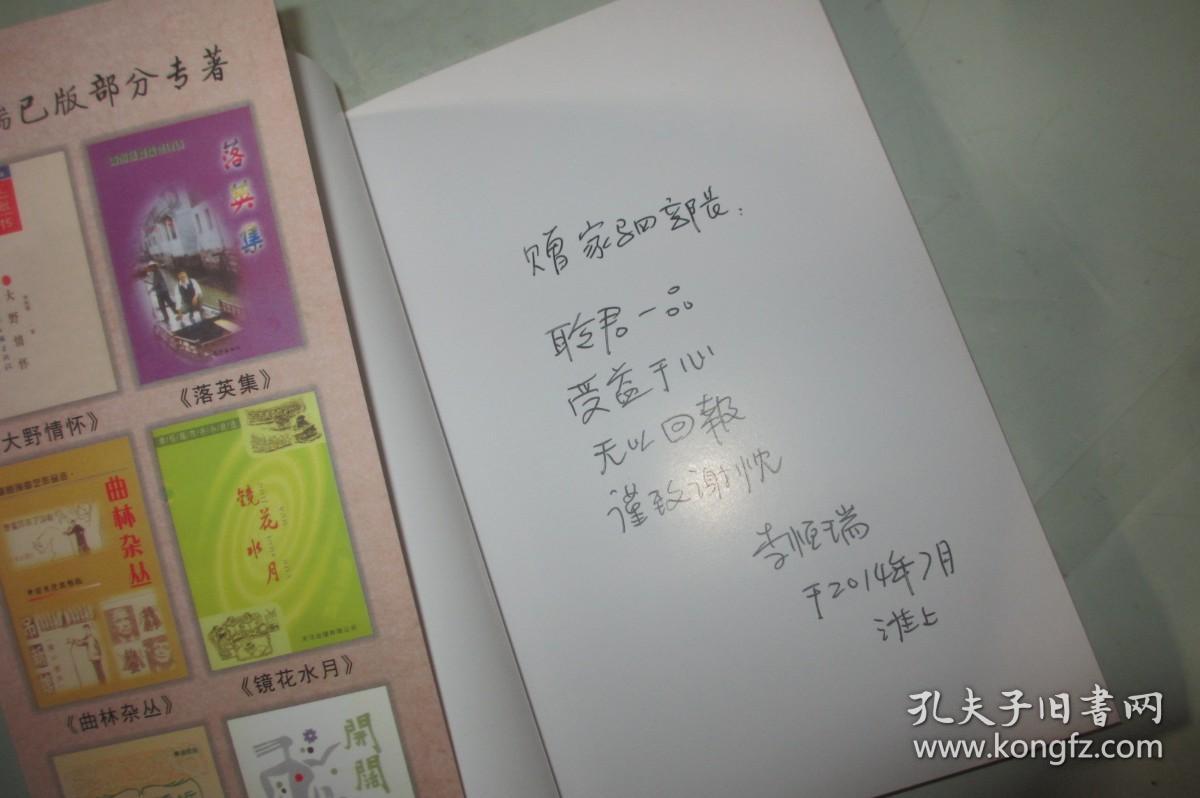 瑞已版部分专著
大野情怀
落英集
大野情怀》
《落英集》
曲林杂丛
镜花水月
《曲林杂丛》
《镜花水月》
開闊
赠家驷部长：
聆君一品
受益于心
无以回報
谨致谢忱
李恒瑞
于2014年7月
淮上
孔夫子旧书网
www.kongfz.com